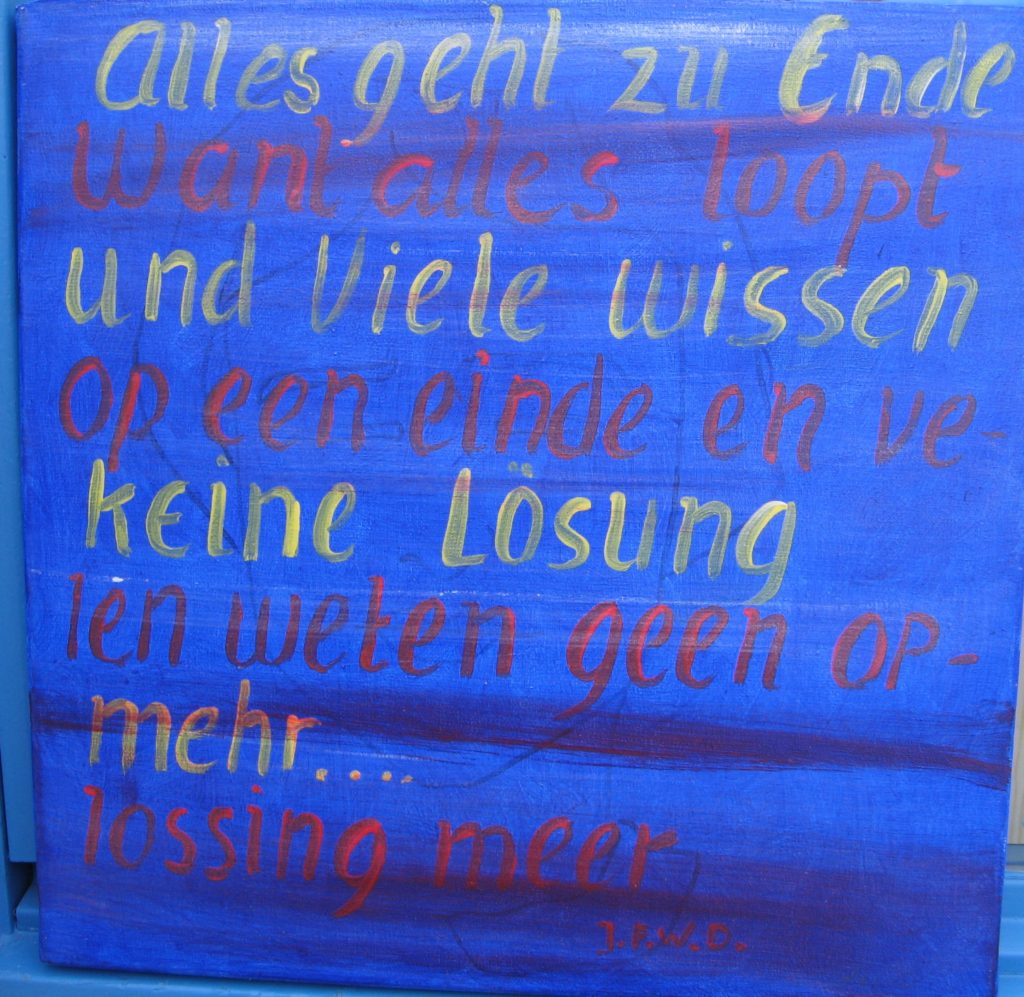 Alles geht zu Ende
Want alles loopt
und Viele wissen
op een einde en ve-
keine Lösung
len weten geen op-
mehr.....
lossing meer
J.F.W.D.